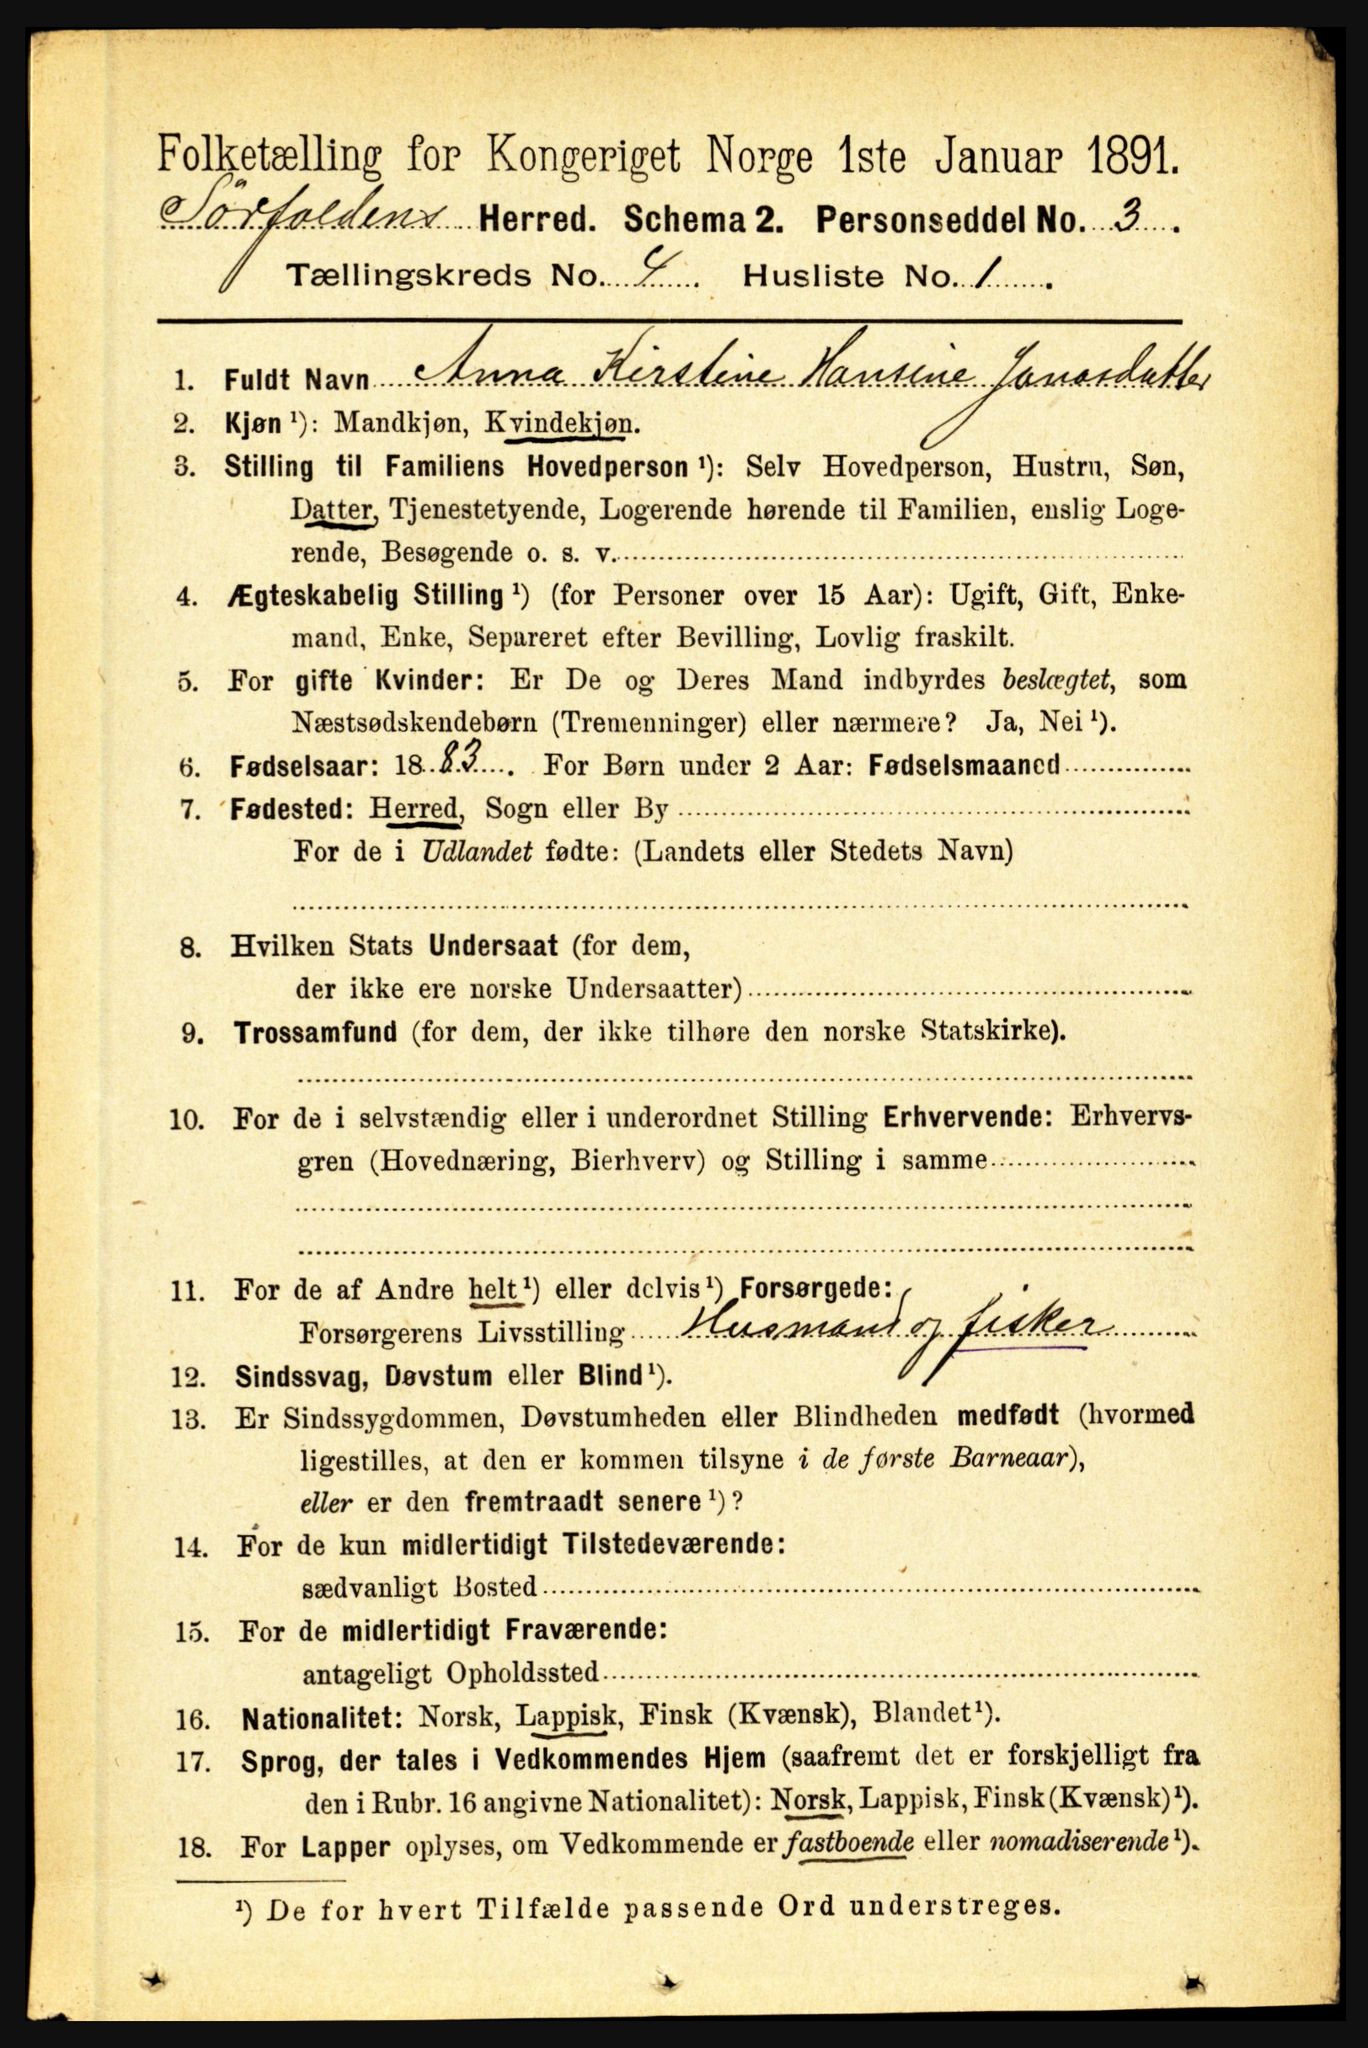 Folketælling for Kongeriget Norge 1ste Januar 1891.
Sörfoldens Herred. Schema 2. Personseddel No. 3.
Tællingskreds No. 4. Husliste No. 1.
1. Fuldt Navn Anna Kirstine Hansine Jonasdatter
2. Kjøn ¹): Mandkjøn, Kvindekjøn.
3. Stilling til Familiens Hovedperson ¹): Selv Hovedperson, Hustru, Søn,
Datter, Tjenestetyende, Logerende hørende til Familien, enslig Loge-
rende, Besøgende o. s. v.
4. Ægteskabelig Stilling ¹) (for Personer over 15 Aar): Ugift, Gift, Enke-
mand, Enke, Separeret efter Bevilling, Lovlig fraskilt.
5. For gifte Kvinder: Er De og Deres Mand indbyrdes beslægtet, som
Næstsødskendebørn (Tremenninger) eller nærmere? Ja, Nei ¹).
6. Fødselsaar: 1883. For Børn under 2 Aar: Fødselsmaaned
7. Fødested: Herred, Sogn eller By
For de i Udlandet fødte: (Landets eller Stedets Navn)
8. Hvilken Stats Undersaat (for dem,
der ikke ere norske Undersaatter)
9. Trossamfund (for dem, der ikke tilhøre den norske Statskirke).
10. For de i selvstændig eller i underordnet Stilling Erhvervende: Erhvervs-
gren (Hovednæring, Bierhverv) og Stilling i samme
11. For de af Andre helt ¹) eller delvis ¹) Forsørgede:
Forsørgerens Livsstilling Husmand og fisker
12. Sindssvag, Døvstum eller Blind ¹).
13. Er Sindssygdommen, Døvstumheden eller Blindheden medfødt (hvormed
ligestilles, at den er kommen tilsyne i de første Barneaar),
eller er den fremtraadt senere ¹)?
14. For de kun midlertidigt Tilstedeværende:
sædvanligt Bosted
15. For de midlertidigt Fraværende:
antageligt Opholdssted
16. Nationalitet: Norsk, Lappisk, Finsk (Kvænsk), Blandet ¹).
17. Sprog, der tales i Vedkommendes Hjem (saafremt det er forskjelligt fra
den i Rubr. 16 angivne Nationalitet): Norsk, Lappisk, Finsk (Kvænsk) ¹).
18. For Lapper oplyses, om Vedkommende er fastboende eller nomadiserende ¹).
¹) De for hvert Tilfælde passende Ord understreges.